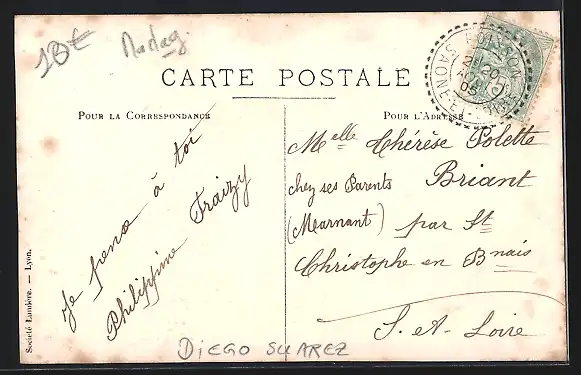 18€
Madag.
CARTE POSTALE
POUR LA CORRESPONDANCE
POUR L'ADRESSE
POISSON
20
SAONE-ET-LOIRE
Je pense à toi
Philippine Fraizy
Melle Thérèse Polette
chez ses Parents Briant
(Marnant) par St
Christophe en Bnais
S.-et-Loire
Société Lumière. — Lyon.
DiEGO SUAREZ